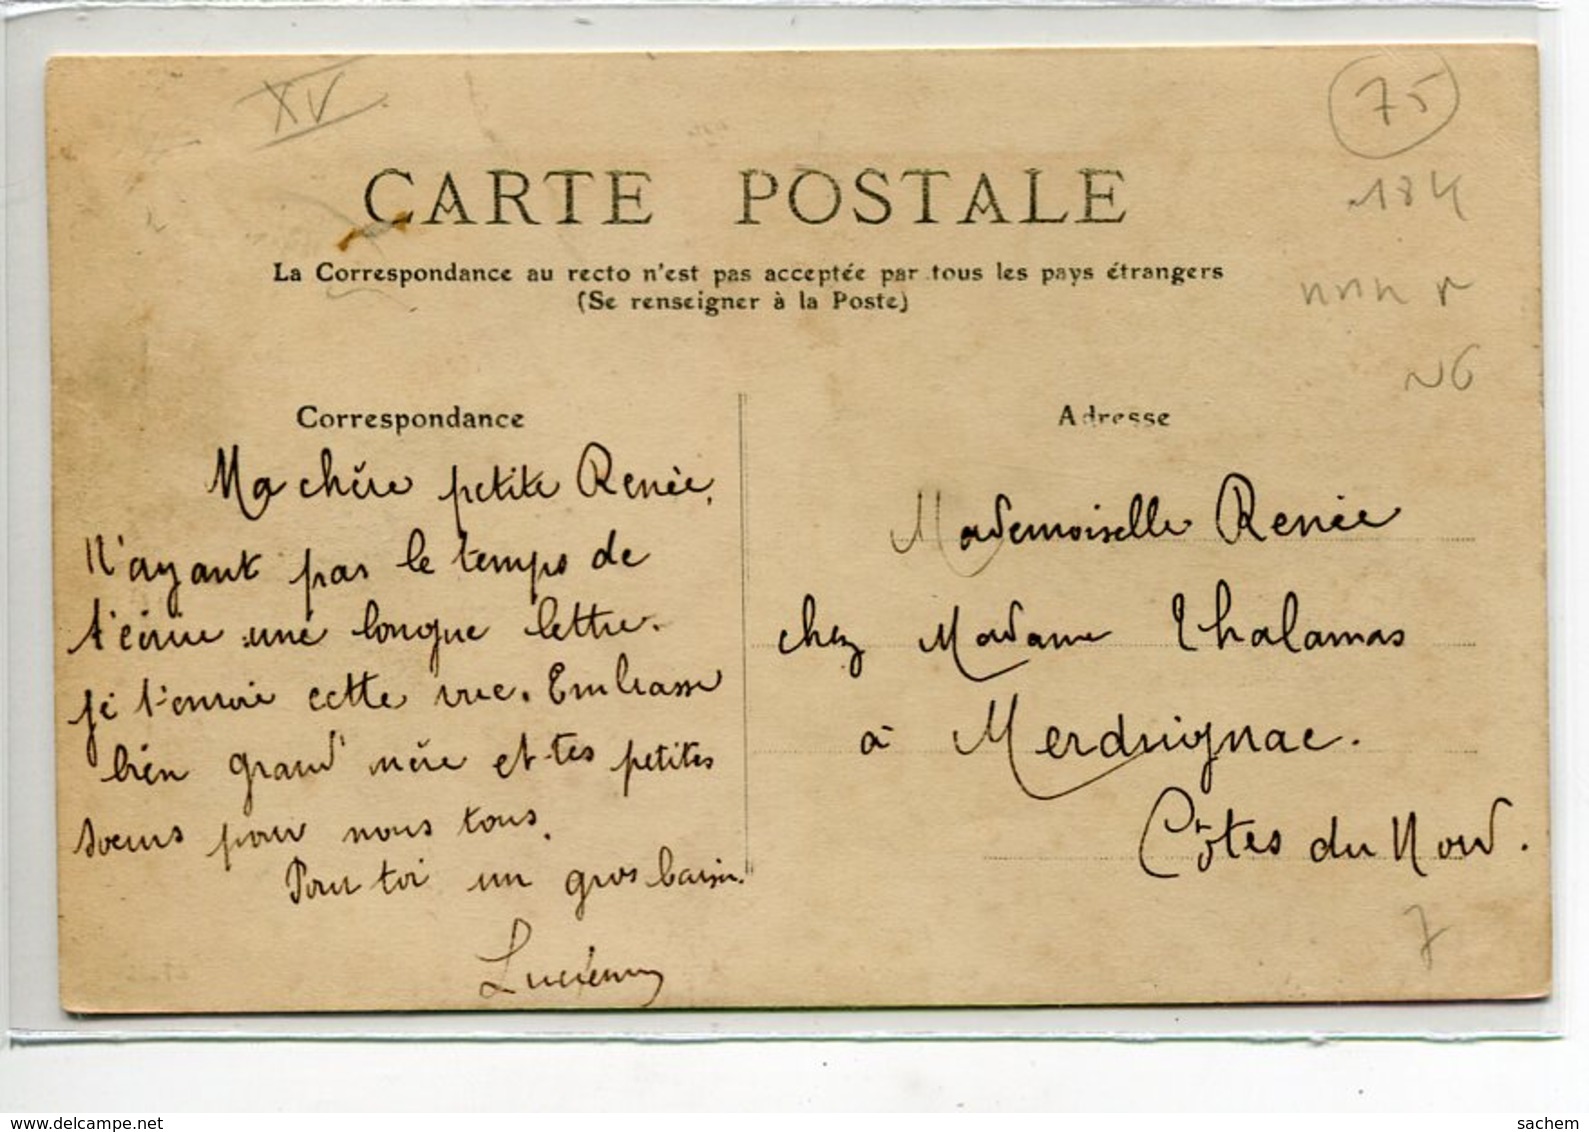 XV
75
184
CARTE POSTALE
La Correspondance au recto n'est pas acceptée par tous les pays étrangers
(Se renseigner à la Poste)
Correspondance
Ma chère petite Renée,
N'ayant pas le temps de
t'écrire une longue lettre.
je t'envoie cette vue. Embrasse
bien grand' mère et tes petites
soeurs pour nous tous.
Pour toi un gros baiser.
Lucienne
Adresse
Mademoiselle Renée
chez Madame Thalamas
à Merdrignac.
Côtes du Nord.
7
www.delcampe.net
sachem